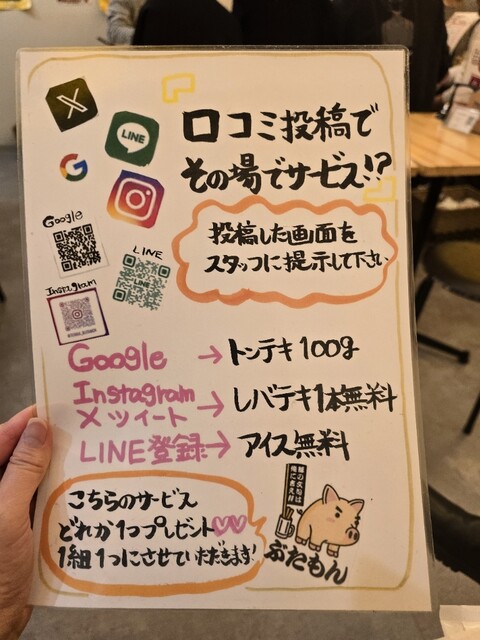 口コミ投稿で
その場でサービス!?
LINE
投稿した画面を
スタッフに提示して下さい
Google
LINE
Instagram
Google → トンテキ100g
Instagram
Xツイート → レバテキ1本無料
LINE登録 → アイス無料
こちらのサービス
どれか1つプレゼント♡♡
1組1つにさせていただきます!
ぶたもん